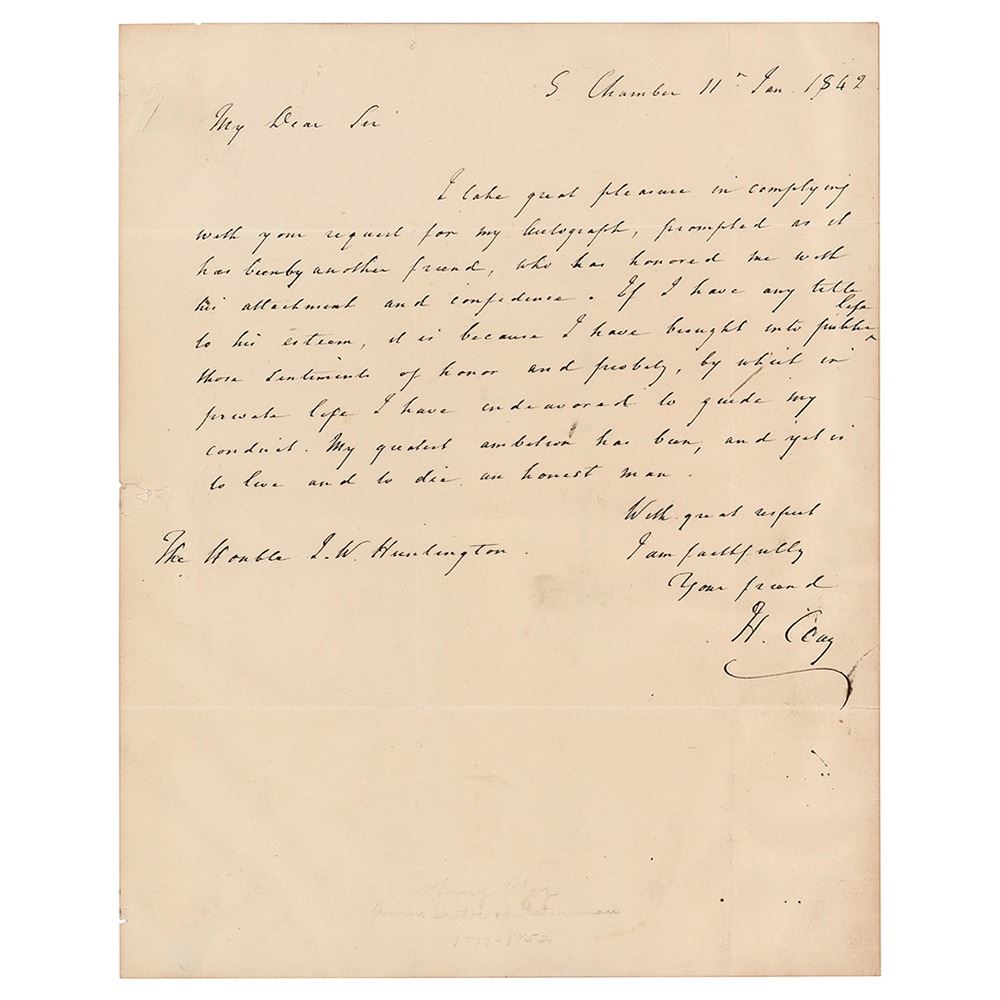 S. Chamber 11th Jan. 1842
My Dear Sir
I take great pleasure in complying
with your request for my Autograph, prompted as it
has been by another friend, who has honored me with
his attachment and confidence. If I have any title
to his esteem, it is because I have brought into public life
those sentiments of honor and probity, by which in
private life I have endeavored to guide my
conduct. My greatest ambition has been, and yet is
to live and to die an honest man.
With great respect
I am faithfully
Your friend
H. Clay
The Honble J. W. Huntington.
Henry Clay
Statesman
1777-1852